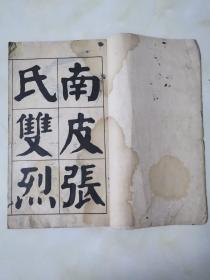 南皮張
氏雙烈